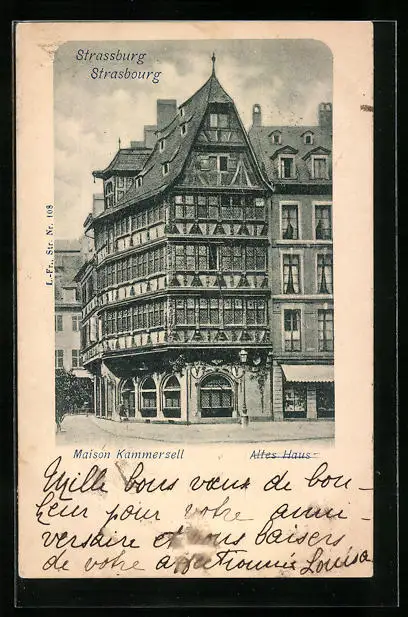 Strassburg
Strasbourg
L.-Fr., Str. Nr. 108
Maison Kammersell
Altes Haus
Mille bons vœux de bon-
heur pour votre anni-
versaire et bons baisers
de votre affectionnée Louisa